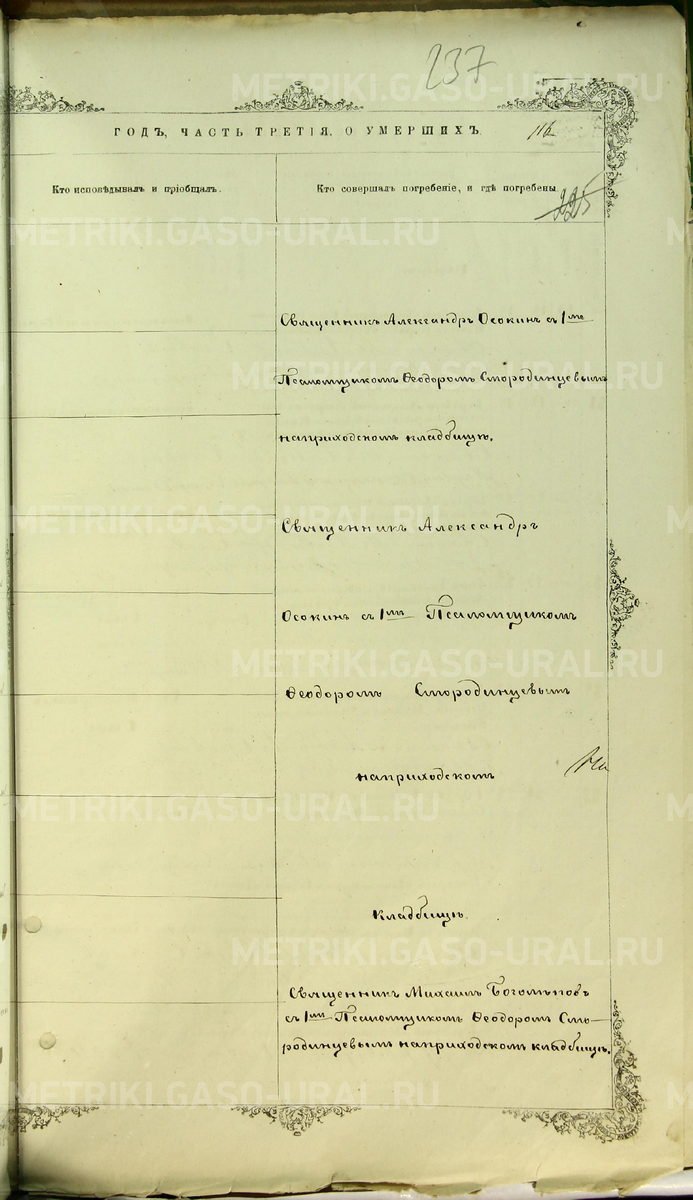 237
ГОДЪ, ЧАСТЬ ТРЕТІЯ, О УМЕРШИХЪ.
Кто исповѣдывалъ и пріобщалъ.
Кто совершалъ погребеніе, и гдѣ погребены.
225
Священникъ Александръ Осокинъ съ 1мъ
Псаломщикомъ Ѳеодоромъ Смородинцевымъ
наприходскомъ кладбищѣ.
Священникъ Александръ
Осокинъ съ 1мъ Псаломщикомъ
Ѳеодоромъ Смородинцевымъ
наприходскомъ
Кладбищѣ.
Священникъ Михаилъ Боголѣповъ
съ 1мъ Псаломщикомъ Ѳеодоромъ Смо-
родинцевымъ наприходскомъ кладбищѣ.
METRIKI.GASO-URAL.RU